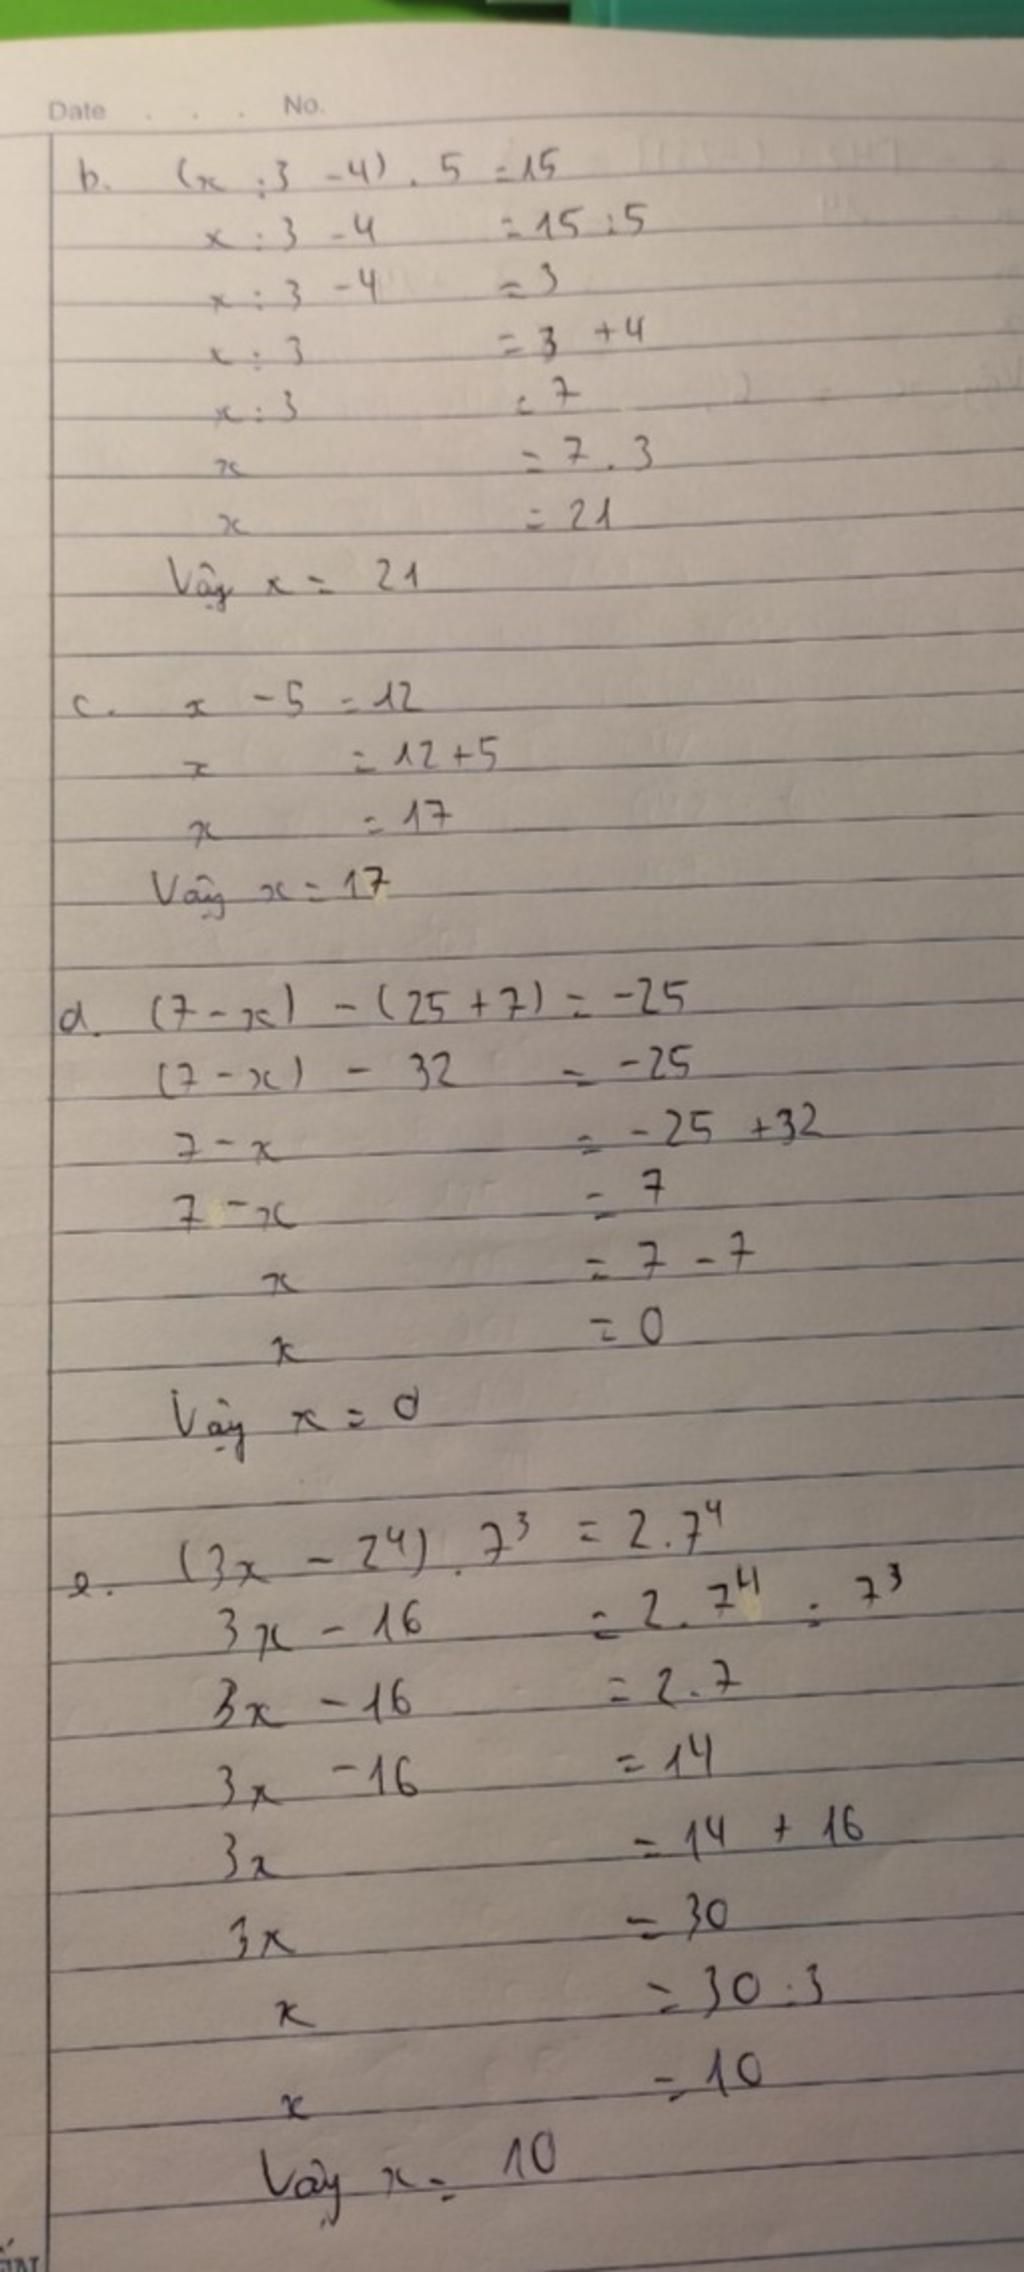 Date . . . No.
b. (x : 3 - 4) . 5 = 15
x : 3 - 4 = 15 : 5
x : 3 - 4 = 3
x : 3 = 3 + 4
x : 3 = 7
x = 7 . 3
x = 21
Vậy x = 21
c. x - 5 = 12
x = 12 + 5
x = 17
Vậy x = 17
d. (7 - x) - (25 + 7) = -25
(7 - x) - 32 = -25
7 - x = -25 + 32
7 - x = 7
x = 7 - 7
x = 0
Vậy x = 0
e. (3x - 2⁴) . 7³ = 2 . 7⁴
3x - 16 = 2 . 7⁴ : 7³
3x - 16 = 2 . 7
3x - 16 = 14
3x = 14 + 16
3x = 30
x = 30 : 3
x = 10
Vậy x = 10